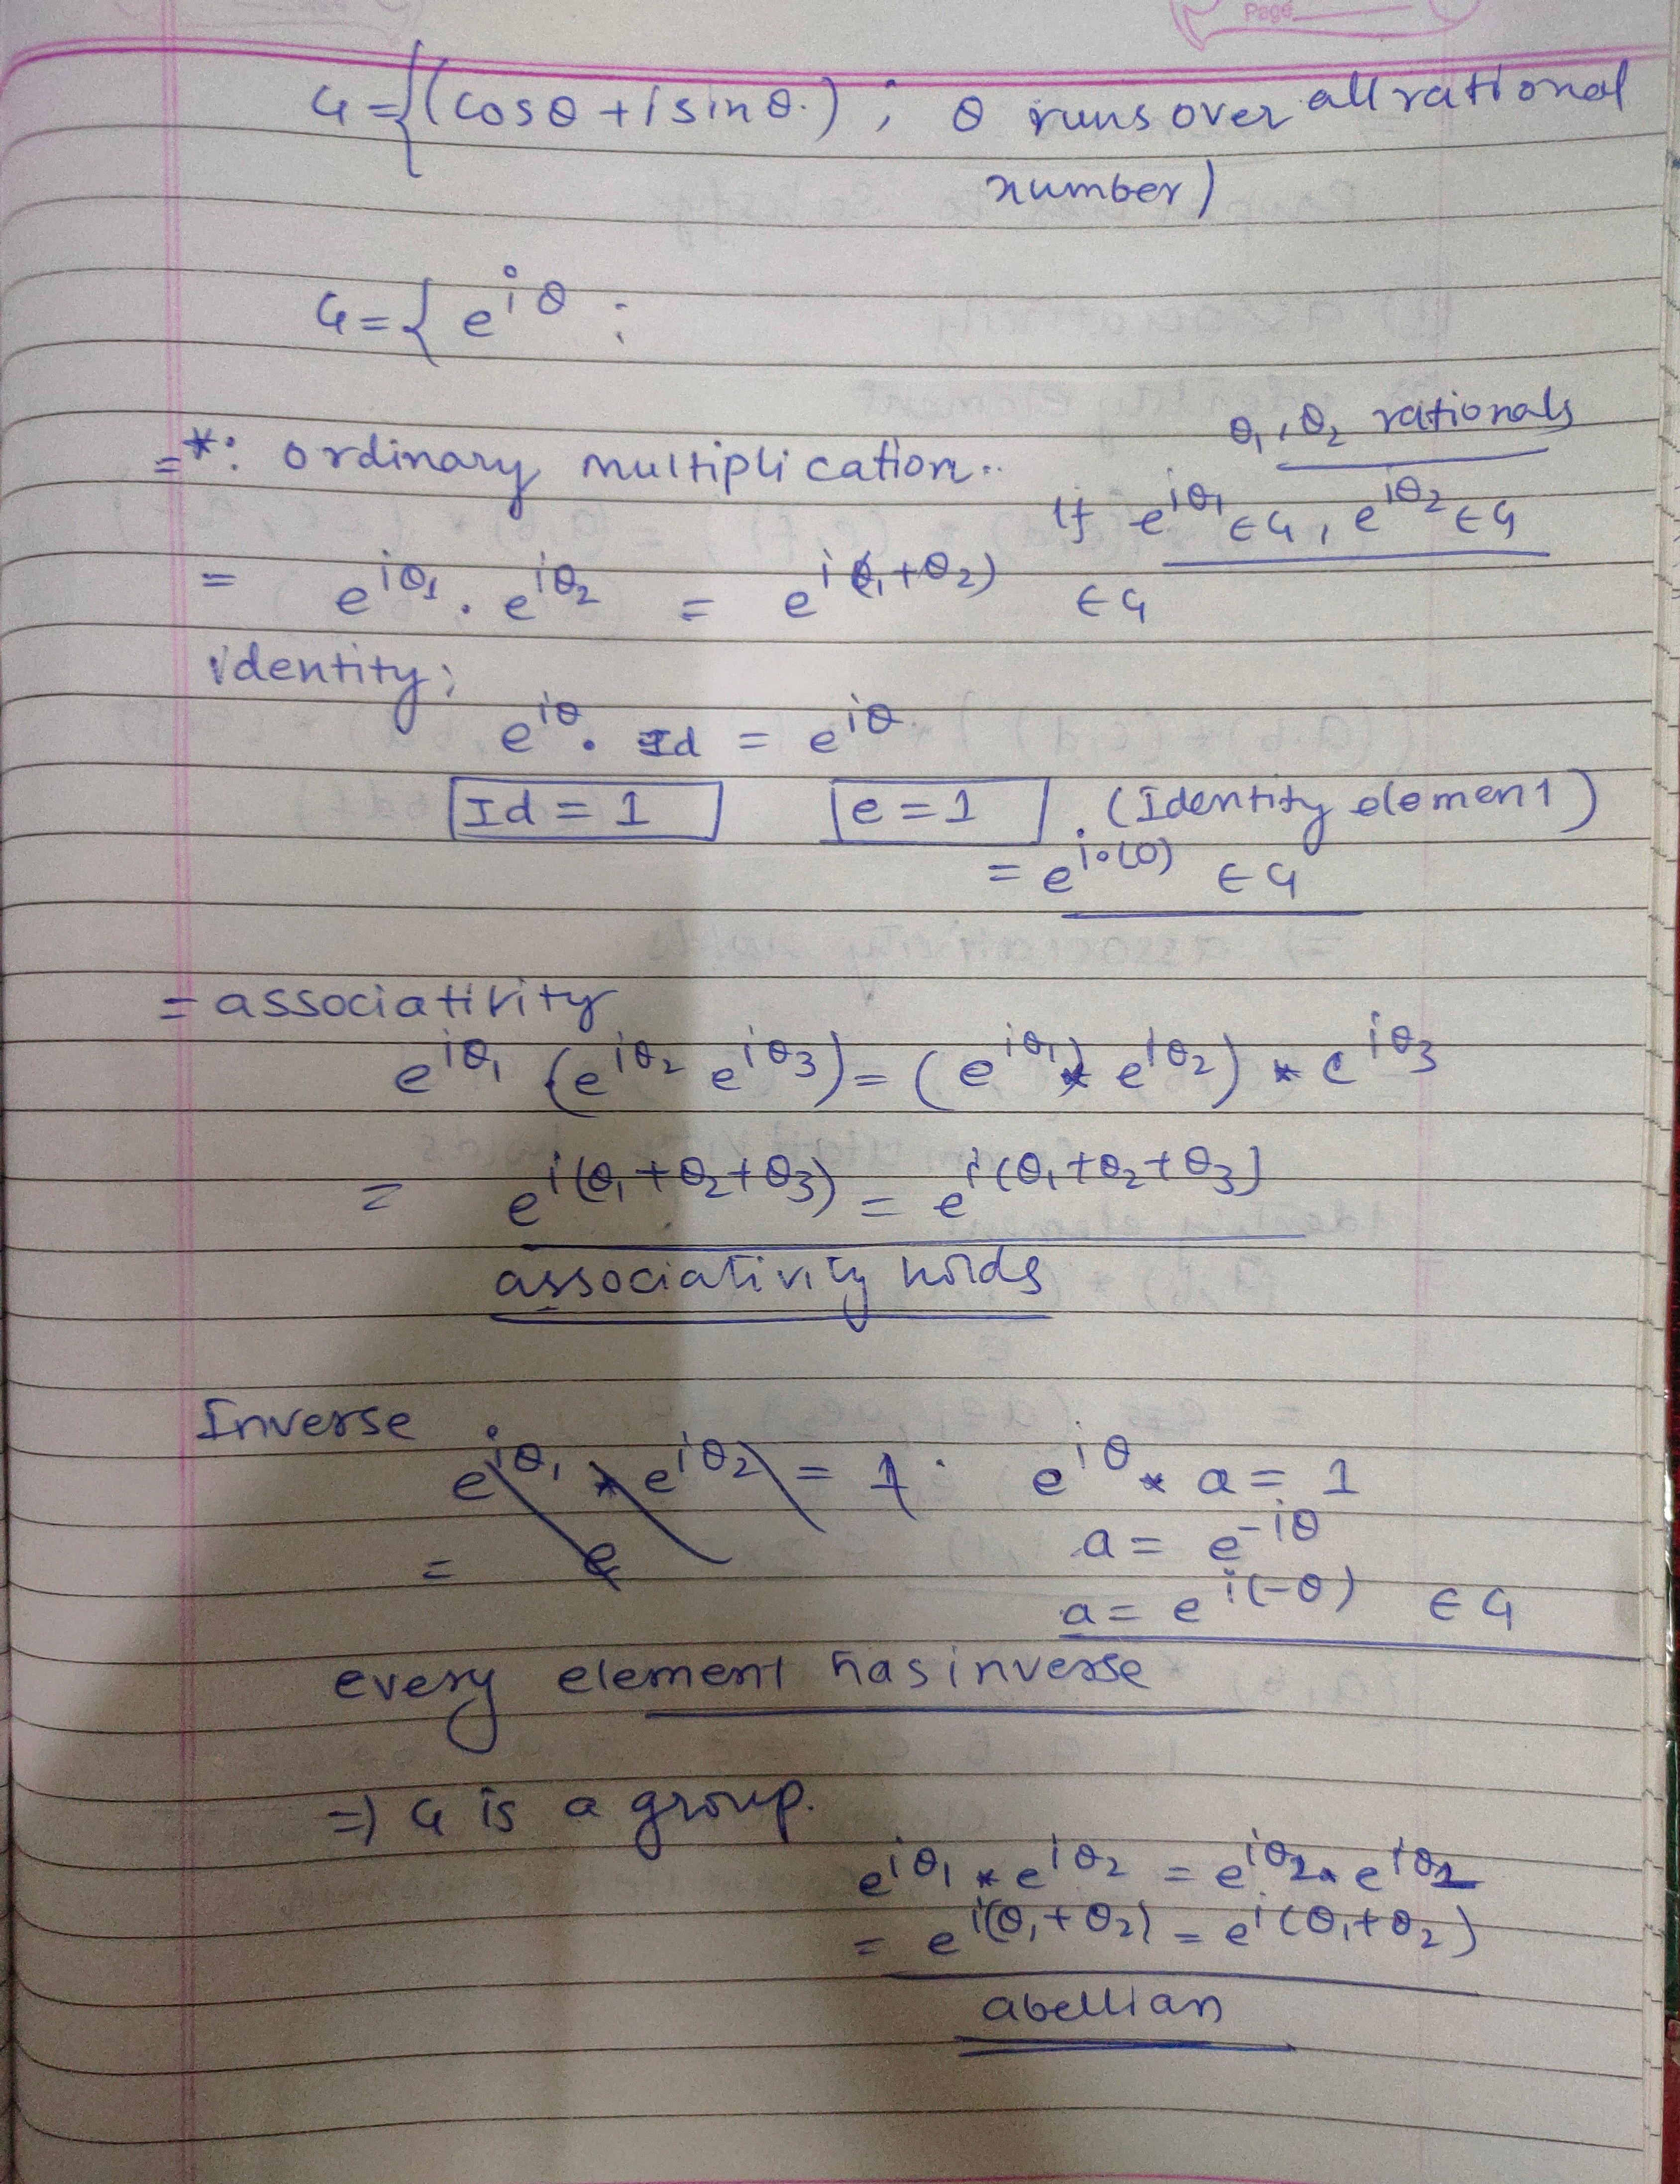 Page
G = {(cosθ + i sinθ.) ; θ runs over all rational
number)
G = { e^{iθ} :
θ₁, θ₂ rationals
= *: ordinary multiplication..
If e^{iθ₁} ∈ G, e^{iθ₂} ∈ G
= e^{iθ₁} . e^{iθ₂} = e^{i(θ₁+θ₂)} ∈ G
identity;
e^{iθ} . Id = e^{iθ}
Id = 1 e = 1 . (Identity element)
= e^{i.(0)} ∈ G
= associativity
e^{iθ₁} (e^{iθ₂} e^{iθ₃}) = (e^{iθ₁} * e^{iθ₂}) * e^{iθ₃}
= e^{i(θ₁+θ₂+θ₃)} = e^{i(θ₁+θ₂+θ₃)}
associativity holds
Inverse
e^{iθ₁} * e^{iθ₂} = 1 . e^{iθ} * a = 1
= e a = e^{-iθ}
a = e^{i(-θ)} ∈ G
every element has inverse
=) G is a group.
e^{iθ₁} * e^{iθ₂} = e^{iθ₂} * e^{iθ₁}
= e^{i(θ₁+θ₂)} = e^{i(θ₁+θ₂)}
abellian